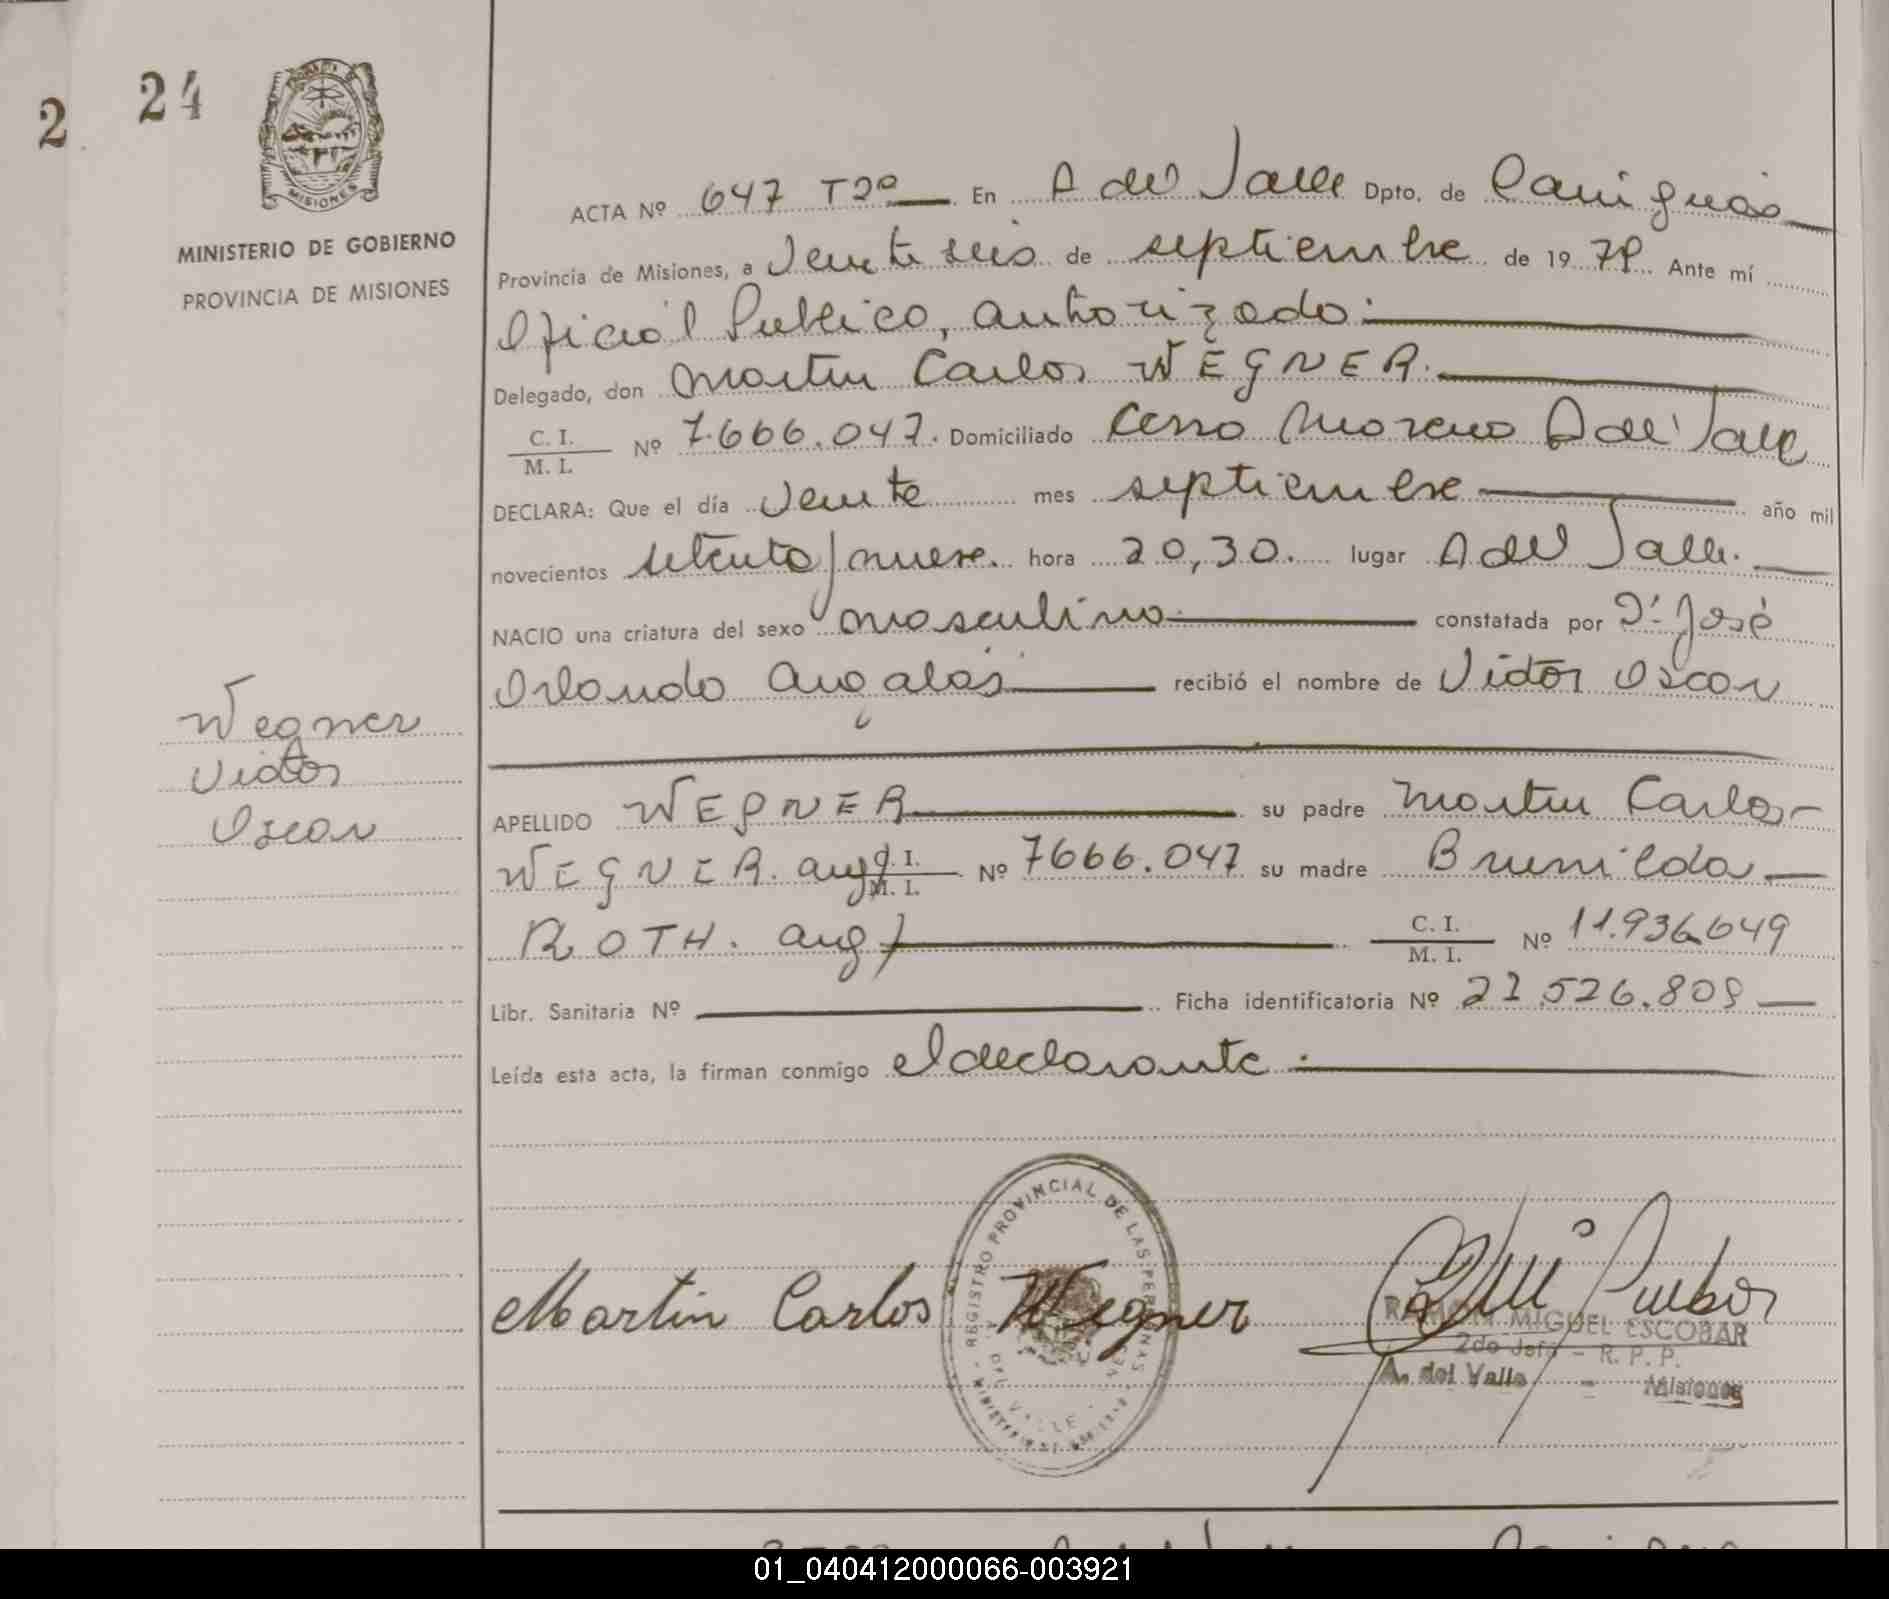 2 24
MISIONES
MINISTERIO DE GOBIERNO
PROVINCIA DE MISIONES
ACTA Nº 647 T2º En A del Valle Dpto. de Cainguás
Provincia de Misiones, a veinte seis de septiembre de 1979 Ante mí
Oficial Público, autorizado
Delegado, don Martin Carlos WEGNER.
C. I.
M. I. Nº 7.666.047. Domiciliado Cerro Moreno A del Valle
DECLARA: Que el día veinte mes septiembre año mil
novecientos setenta/nueve. hora 20,30. lugar A del Valle.
NACIO una criatura del sexo masculino constatada por Dr José
Orlando recibió el nombre de Victor Oscar
Wegner
Victor
Oscar
APELLIDO WEGNER su padre Martin Carlos
WEGNER. arg/ C. I.
M. I. Nº 7666.047 su madre Brunilda
ROTH. arg/ C. I.
M. I. Nº 11.936.649
Libr. Sanitaria Nº Ficha identificatoria Nº 27.526.809
Leída esta acta, la firman conmigo el declarante
REGISTRO PROVINCIAL DE LAS PERSONAS
DEL VALLE
Martin Carlos Wegner
RAMON MIGUEL ESCOBAR
2do Jefe - R. P. P.
A. del Valle - Misiones
01_040412000066-003921